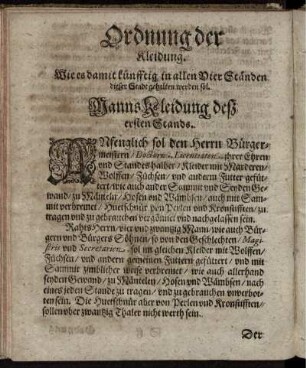 Ordnung der
Kleidung.
Wie es damit künfftig in allen Vier Ständen
dieser Stadt gehalten werden sol.
Manns Kleidung deß
ersten Stands.
ANfenglich sol den Herrn Bürger-
meistern / Doctorn, Licentiaten, ihrer Ehren
und Standes halber / Kleider mit Marderen /
Wolffen / Füchsen / und anderm Futter gefüt-
tert / wie auch ander Sammit und Seyden Ge-
wand / zu Mänteln / Hosen und Wämbsen / auch mit Sam-
mit verbremet / Huetschnür von Perlen und Kronstifften / zu
tragen und zu gebrauchen vergönnet und nachgelassen sein.
Rahts Herrn / vier und zwantzig Mann / wie auch Bür-
gern und Bürgers Söhnen / so von den Geschlechten / Magi-
stris und Secretarien, sol im gleichen Kleider mit Wolffen /
Füchsen / und andern gemeinen Futtern gefüttert / und mit
Sammit zimblicher weise verbremet / wie auch allerhand
seyden Gewand / zu Mänteln / Hosen und Wämbsen / nach
eines jeden Stande zu tragen / und zu gebrauchen unverbot-
ten sein. Die Huetschnür aber von Perlen und Kronstifften /
sollen uber zwantzig Thaler nicht werth sein.
Der